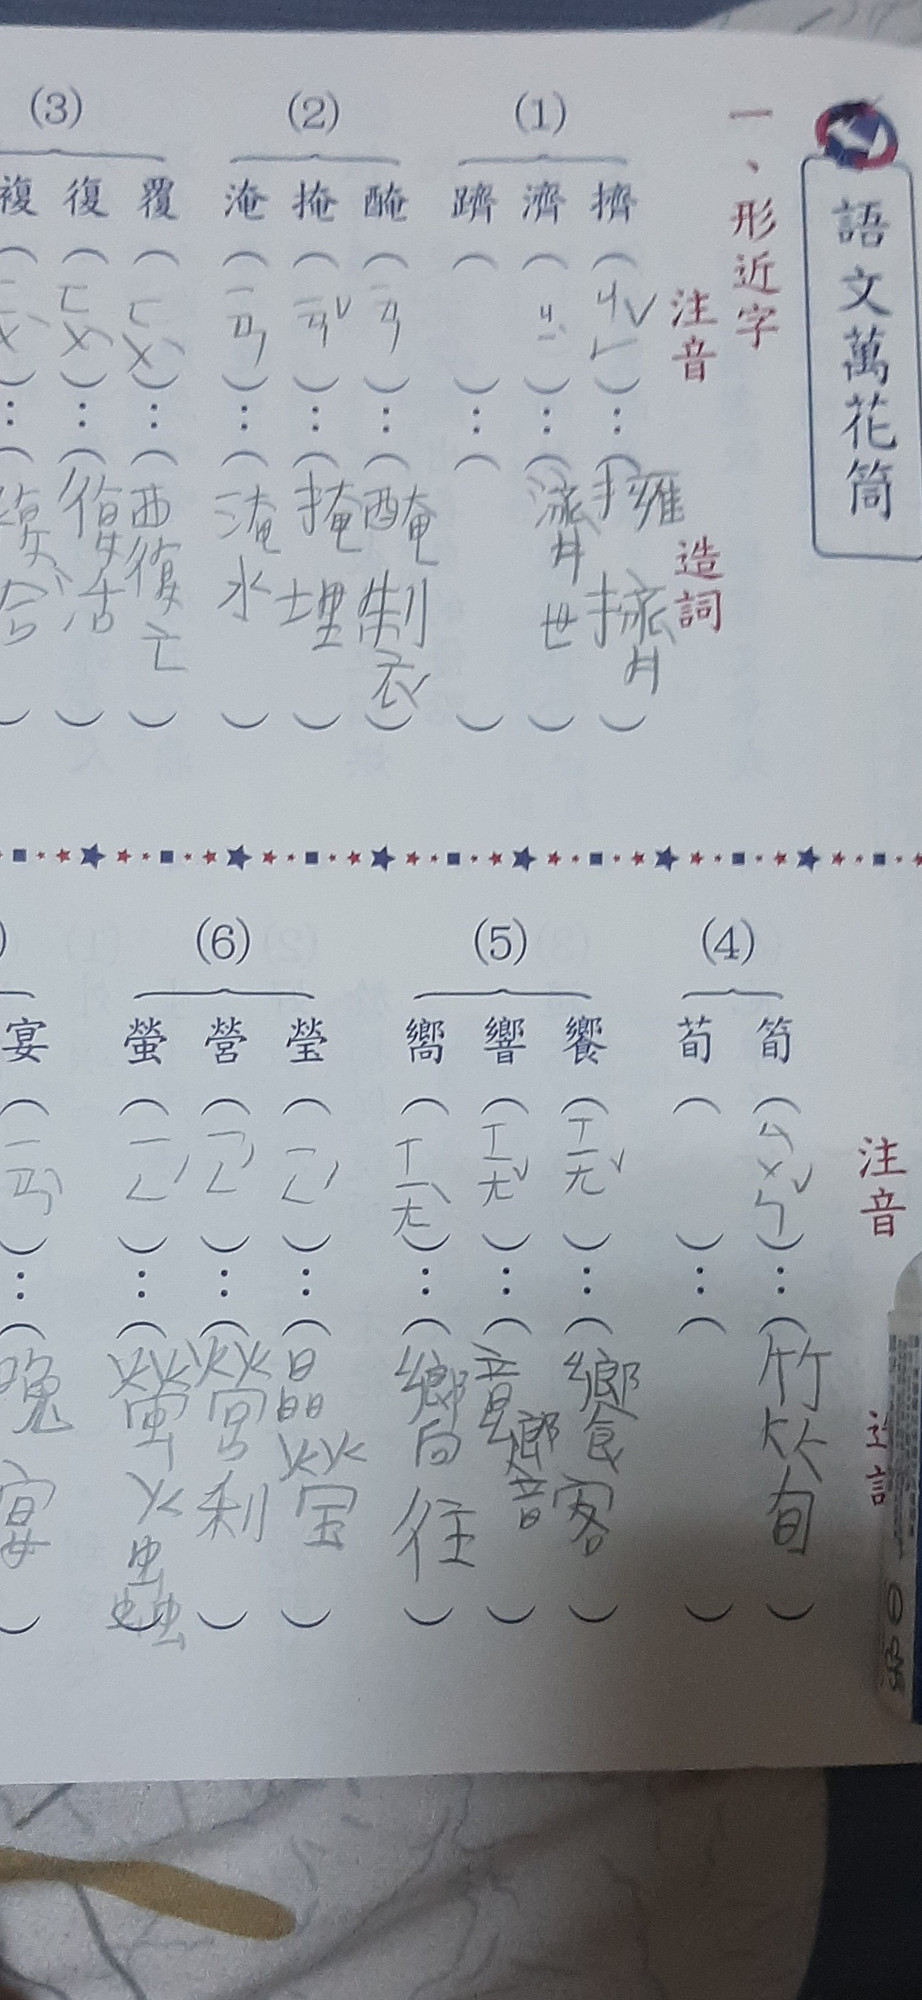 語文萬花筒
一、形近字
注音
造詞
(1)
擠(ㄐㄧˇ):(擁擠)
濟(ㄐㄧˋ):(濟世)
躋( ):( )
(2)
醃(ㄧㄢ):(醃製)
掩(ㄧㄢˇ):(掩埋)
淹(ㄧㄢ):(淹水)
(3)
覆(ㄈㄨˋ):(覆亡)
復(ㄈㄨˋ):(復活)
複(ㄈㄨˋ):(複合)
注音
(4)
筍(ㄙㄨㄣˇ):(竹筍)
荀( ):( )
(5)
饗(ㄒㄧㄤˇ):(饗客)
響(ㄒㄧㄤˇ):(音響)
嚮(ㄒㄧㄤˋ):(嚮往)
(6)
瑩(ㄧㄥˊ):(晶瑩)
營(ㄧㄥˊ):(營利)
螢(ㄧㄥˊ):(螢火蟲)
宴(ㄧㄢˋ):(晚宴)